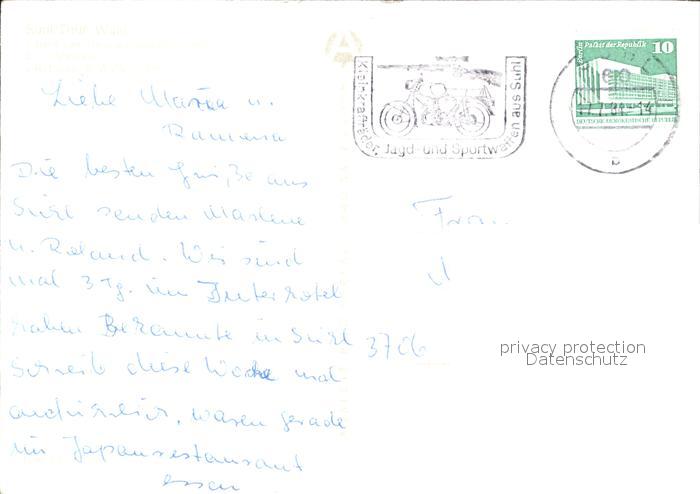 Suhl Thür. Wald
Liebe Maria u.
Ramona
Die besten Grüße aus
Suhl senden Marlene
u. Roland. Wir sind
mal 3 Tg. im Interhotel
haben Bekannte in Suhl
Schreib diese Woche mal
ausführlich, waren gerade
im Japanrestaurant
essen
Kleinkrafträder, Jagd- und Sportwaffen aus Suhl
Berlin, Palast der Republik
10
DEUTSCHE DEMOKRATISCHE REPUBLIK
a
3706
privacy protection
Datenschutz